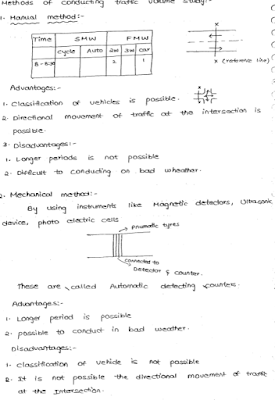 Methods of conducting traffic volume study:-
1. Manual method:-
Time SMW FMW
cycle Auto 2w 3w car
8-8:30 2 1
x
x (reference line)
Advantages:-
1. Classification of vehicles is possible.
2. Directional movement of traffic at the intersection is
possible.
3. Disadvantages:-
1. Longer periods is not possible
2. Difficult to conducting on bad wheather.
2. Mechanical method:-
By using instruments like Magnetic detectors, Ultrasonic
device, photo electric cells
Pneumatic tyres
connected to
Detector & counter.
These are called Automatic detecting counters.
Advantages:-
1. Longer period is possible
2. possible to conduct in bad weather.
Disadvantages:-
1. Classification of vehicle is not possible
2. It is not possible the directional movement of traffic
at the Intersection.